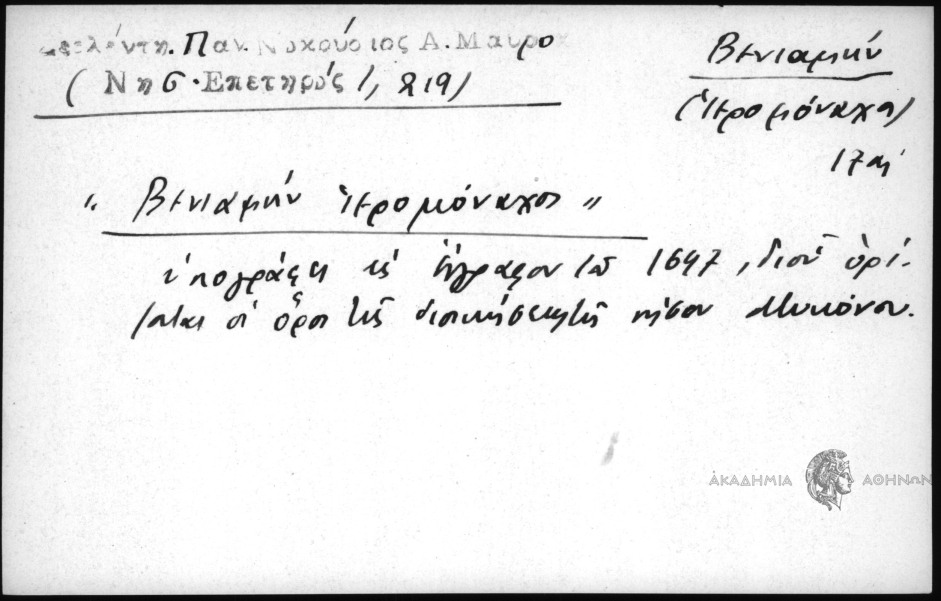 Ζερλέντη. Παν. Νικούσιος Α. Μαυρο
(Νησ. Επετηρίς 1, 219)
Βενιαμίν
(ἱερομόναχος)
17 αἰ
“Βενιαμίν ἱερομόναχος”
ὑπογράφει εἰς ἔγγραφον τοῦ 1647, δι' οὗ ὁρί-
ζονται οἱ ὅροι τῆς διοικήσεως τῆς νήσου Μυκόνου.
ΑΚΑΔΗΜΙΑ ΑΘΗΝΩΝ